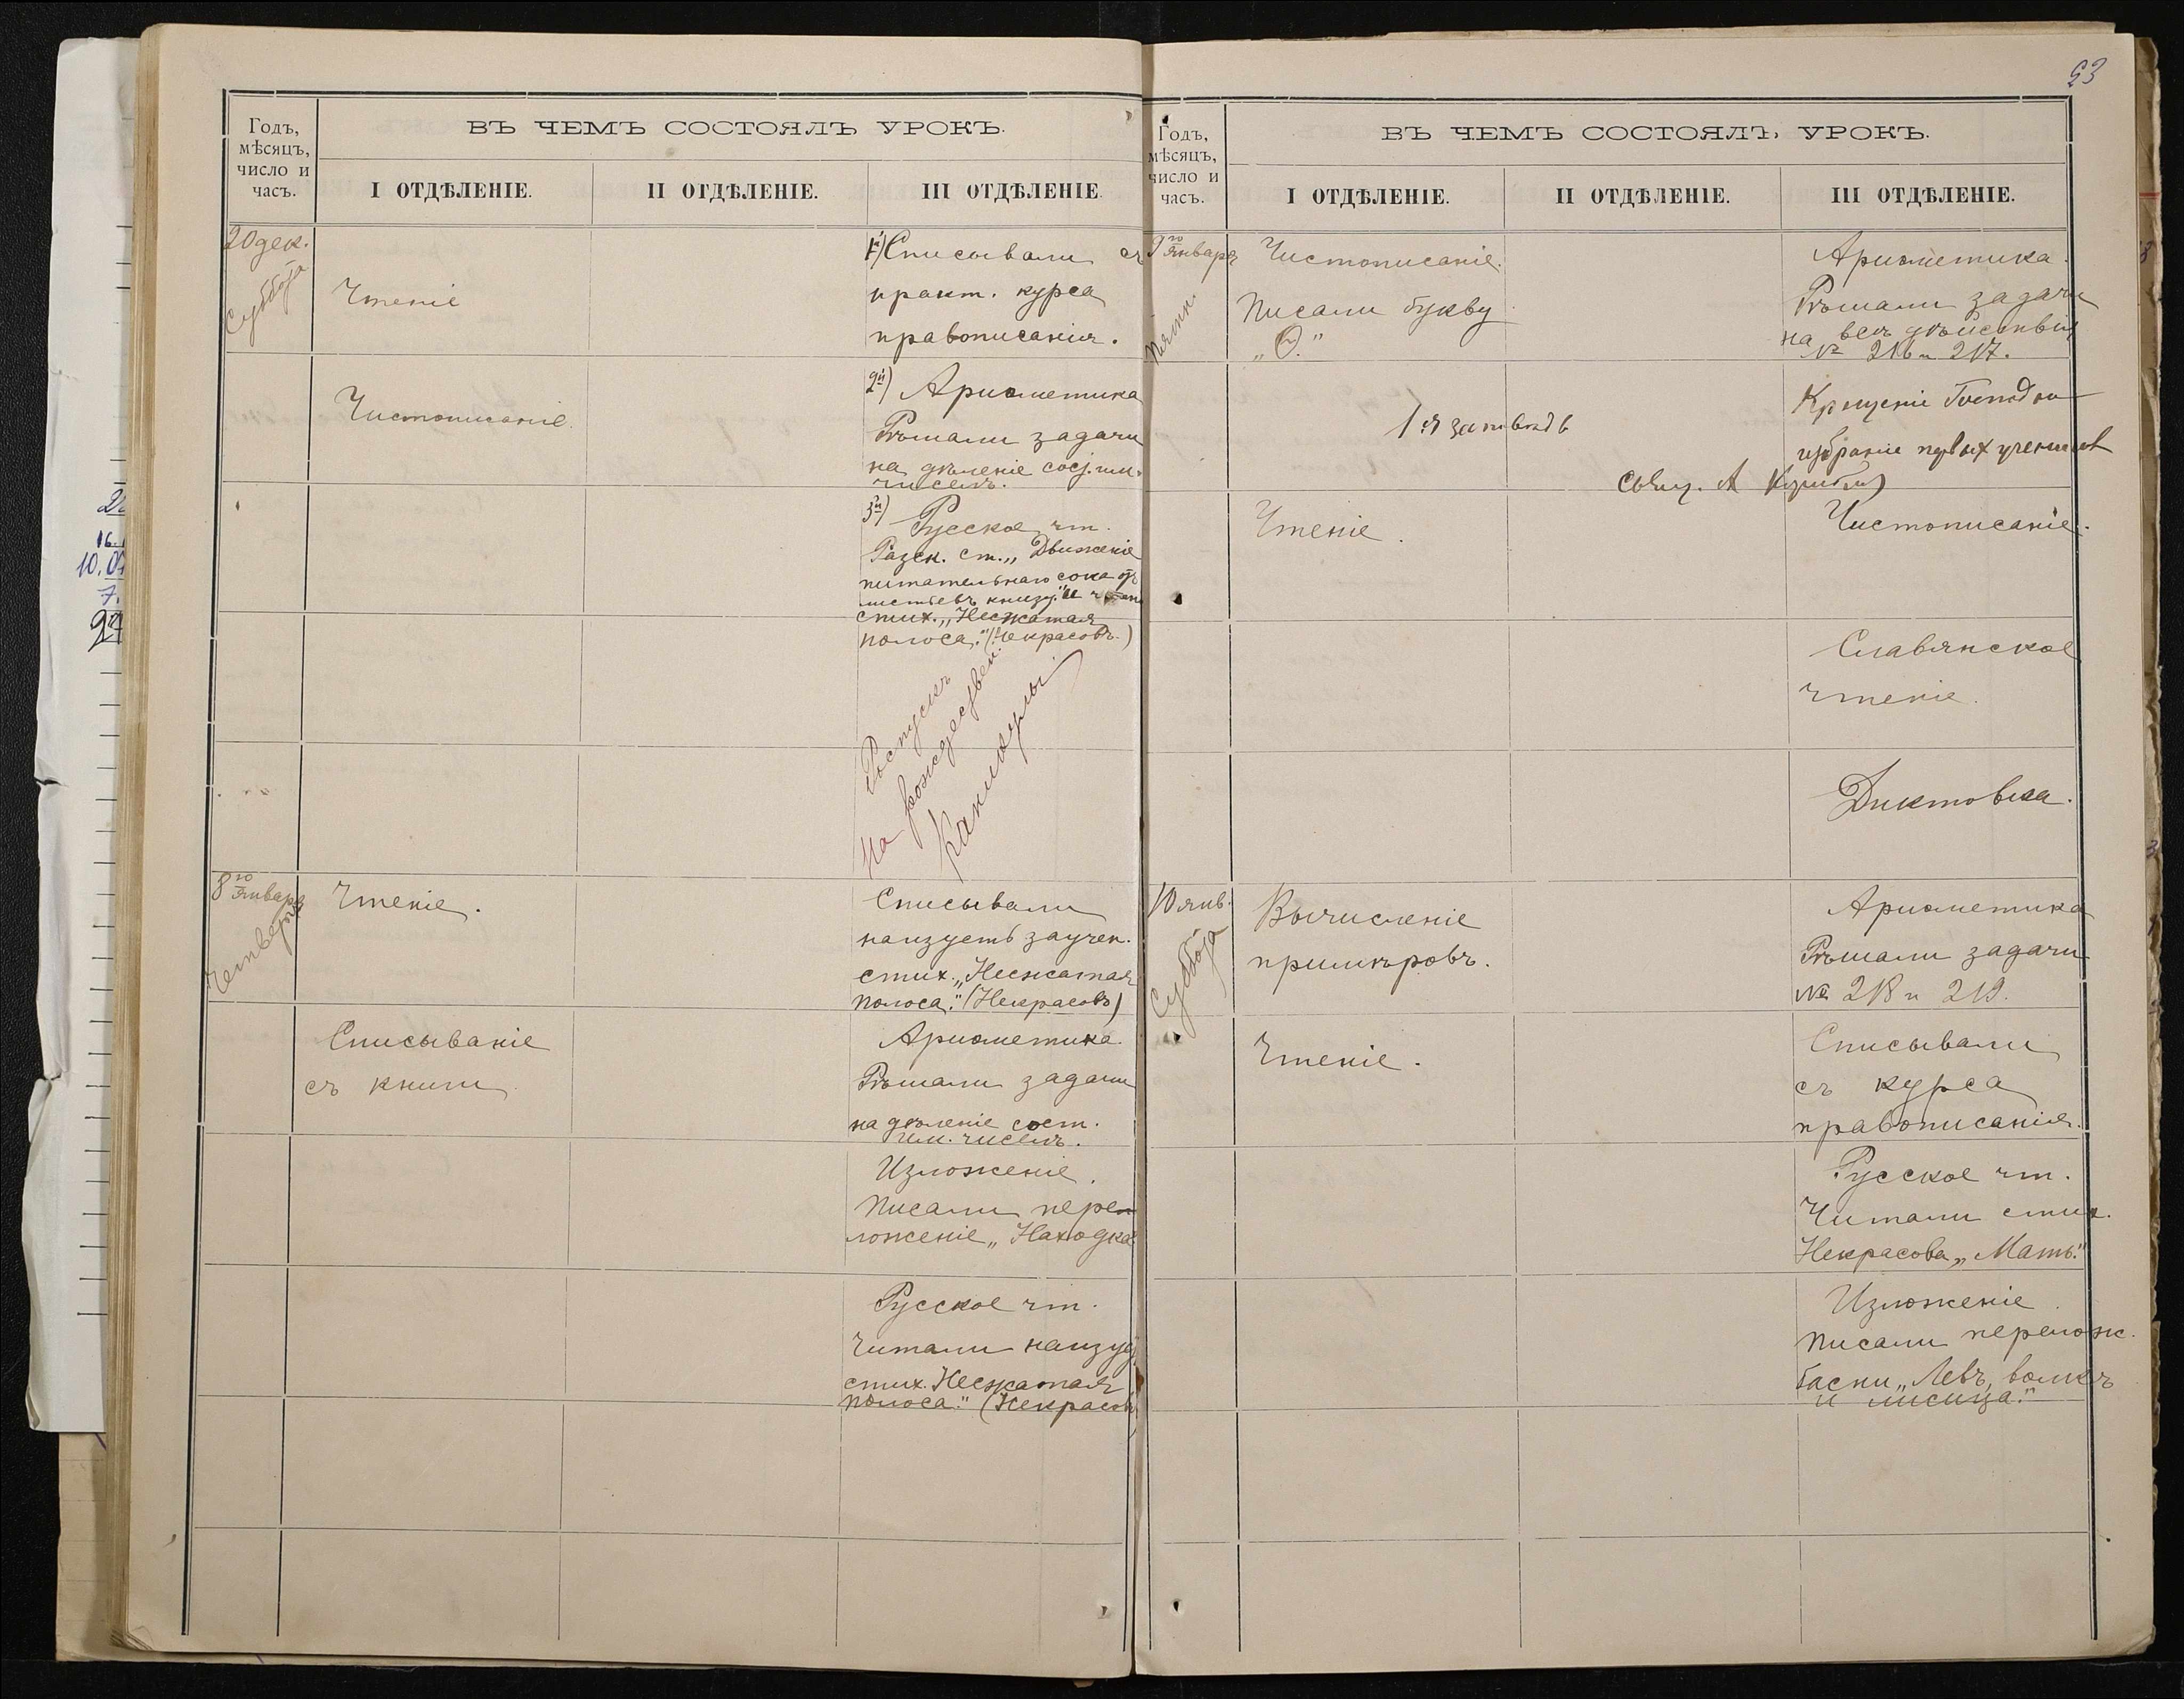 53
Годъ,
мѣсяцъ,
число и
часъ.
ВЪ ЧЕМЪ СОСТОЯЛЪ УРОКЪ.
I ОТДѢЛЕНІЕ.
II ОТДѢЛЕНІЕ.
III ОТДѢЛЕНІЕ.
20 дек.
Суббота
Чтеніе
1й) Списывали съ
практ. курса
правописанія.
Чистописаніе.
2й) Ариѳметика
Рѣшали задачи
на дѣленіе сост. им.
чиселъ.
3й) Русское чт.
Разск. ст. „Движеніе
питательнаго сока отъ
листьевъ книзу." и
стих. „Несжатая
полоса." (Некрасовъ.)
Роспускъ
на рождествен.
каникулы
8го января
Четвергъ
Чтеніе.
Списывали
наизусть заучен.
стих. „Несжатая
полоса." (Некрасовъ)
Списываніе
съ книги
Ариѳметика.
Рѣшали задачи
на дѣленіе сост.
им. чиселъ.
Изложеніе.
Писали пере-
ложеніе „Находка"
Русское чт.
Читали наизус
стих. Несжатая
полоса." (Некрасовъ
Годъ,
мѣсяцъ,
число и
часъ.
ВЪ ЧЕМЪ СОСТОЯЛЪ УРОКЪ.
I ОТДѢЛЕНІЕ.
II ОТДѢЛЕНІЕ.
III ОТДѢЛЕНІЕ.
9го января
Пятн.
Чистописаніе.
Писали букву
„О."
Ариѳметика.
Рѣшали задачи
на всѣ дѣйствія
№ 216 и 217.
1я заповѣдь
Крещеніе Господне
избраніе первых учеников
Свящ. А
Чтеніе.
Чистописаніе.
Славянское
чтеніе.
Диктовка.
10 янв.
Суббота
Вычисленіе
примѣровъ.
Ариѳметика
Рѣшали задачи
№ 218 и 219.
Чтеніе.
Списывали
съ курса
правописанія.
Русское чт.
Читали стих.
Некрасова „Мать."
Изложеніе.
Писали перелож.
басни „Левъ, волкъ
и лисица."